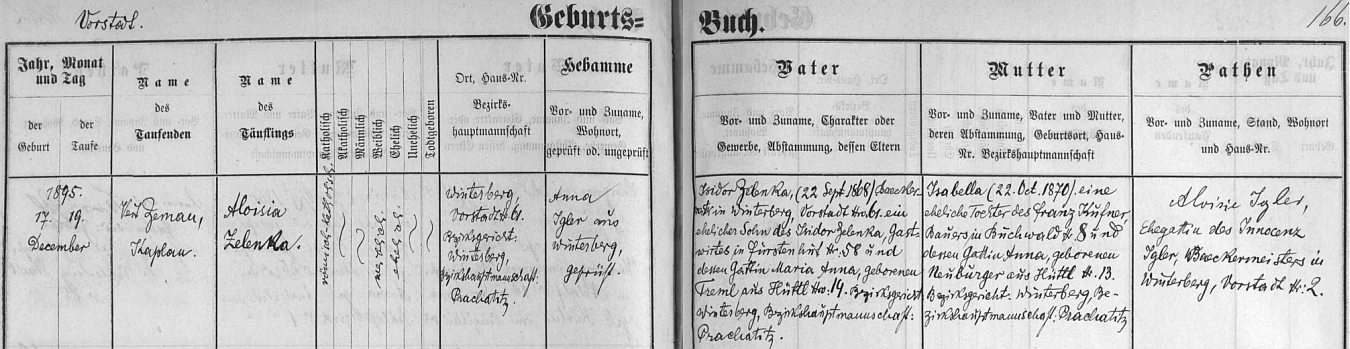 Vorstadt.
Geburts=
Buch.
166.
Jahr, Monat
und Tag
der
Geburt
der
Taufe
Name
des
Taufenden
Name
des
Täuflings
Katholisch
Akatholisch
Männlich
Weiblich
Ehelich
Unehelich
Todtgeboren
Ort, Haus-Nr.
Bezirks-
hauptmannschaft
Hebamme
Vor- und Zuname,
Wohnort,
geprüft od. ungeprüft
Vater
Vor- und Zuname, Charakter oder
Gewerbe, Abstammung, dessen Eltern
Mutter
Vor- und Zuname, Vater und Mutter,
deren Abstammung, Geburtsort, Haus-
Nr. Bezirkshauptmannschaft
Pathen
Vor- und Zuname, Stand, Wohnort
und Haus-Nr.
1895.
17. 19.
December
Zeman,
Kaplan.
Aloisia
Zelenka.
römisch-katholisch
weiblich
ehelich
Winterberg,
Vorstadt Nro. 61.
Bezirksgericht:
Winterberg,
Bezirkshauptmannschaft:
Prachatitz.
Anna
Igler aus
Winterberg,
geprüft
Isidor Zelenka, (22. Sept. 1868) Baecker-
in Winterberg, Vorstadt Nro. 61. ein
ehelicher Sohn des Isidor Zelenka, Gast-
wirtes in Fürstenhut Nr. 58 und
dessen Gattin Maria Anna, geborenen
Treml aus Hüttl Nro. 14. Bezirksgericht
Winterberg, Bezirkshauptmannschaft:
Prachatitz.
Isabella (22. Oct. 1870). eine
eheliche Tochter des Franz Kufner
Bauers in Buchwald Nr. 8 und
dessen Gattin Anna, geborenen
Neuburger aus Hüttl Nr. 13.
Bezirksgericht: Winterberg, Be-
zirkshauptmannschaft: Prachatitz
Aloisie Igler,
Ehegattin des Innocenz
Igler, Baeckermeisters in
Winterberg, Vorstadt Nr. 2.